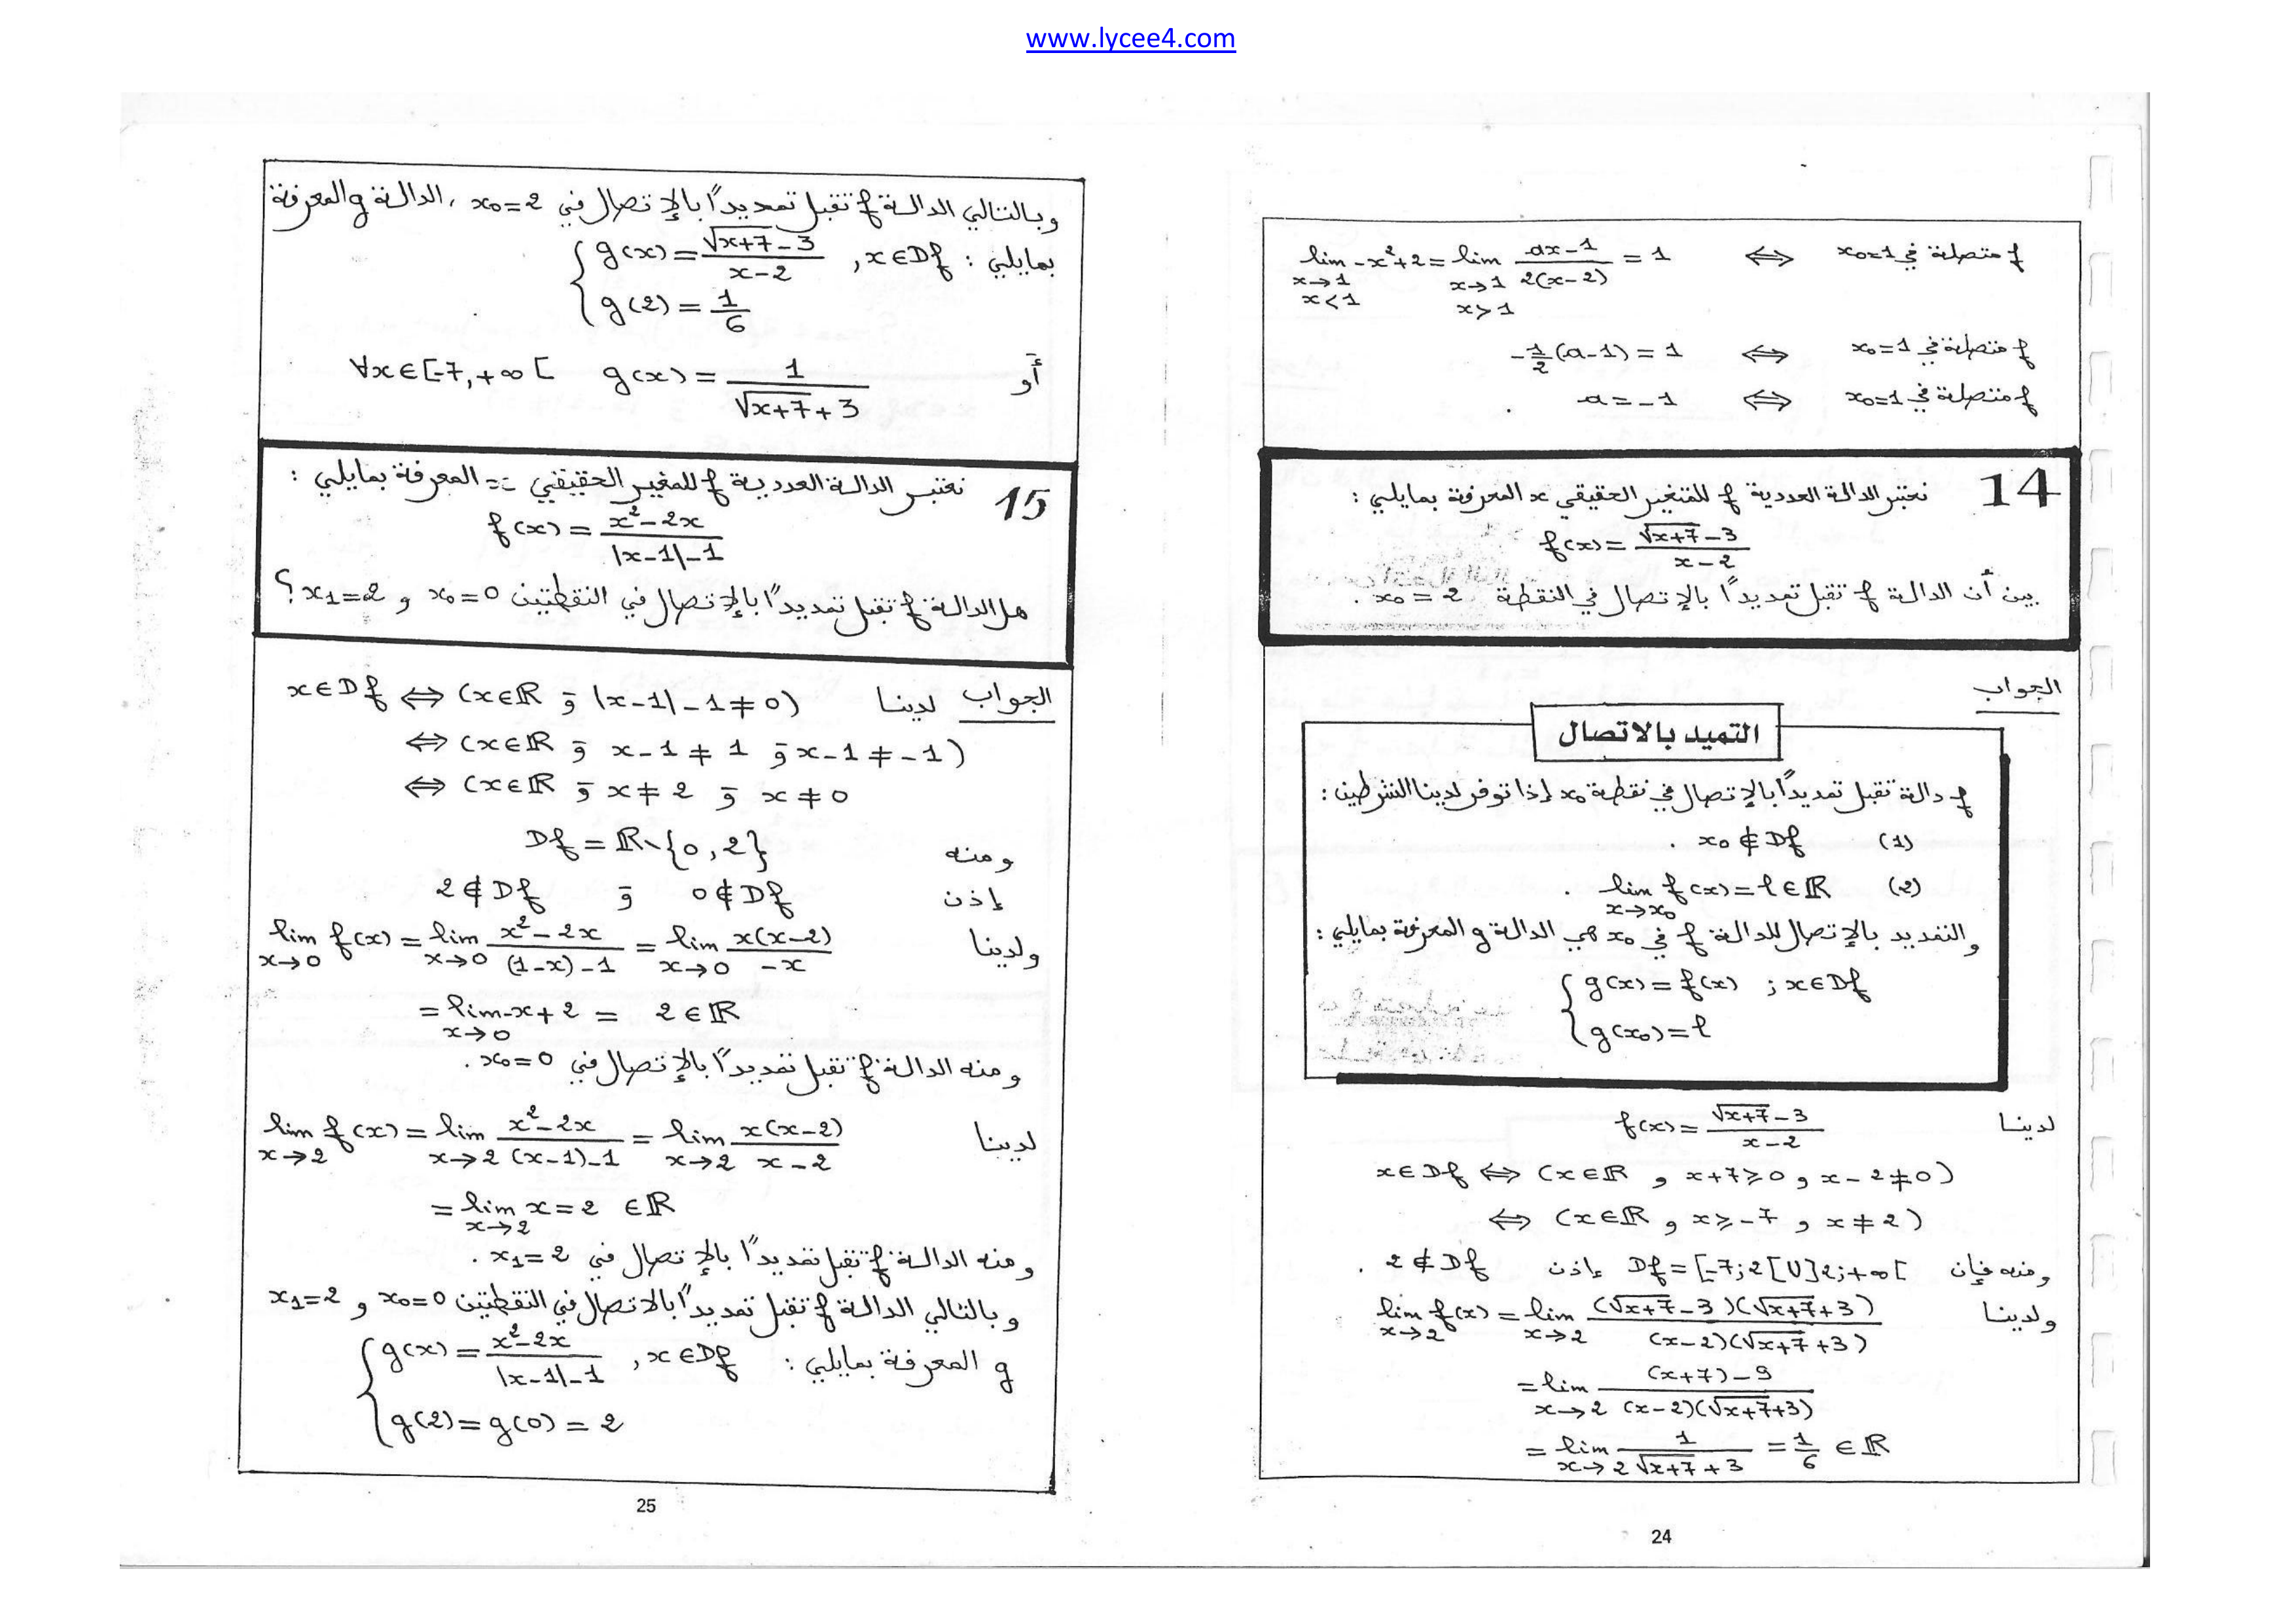 www.lycee4.com
f متصلة في x₀=1 ⟺ lim_{x→1, x<1} -x²+2 = lim_{x→1, x>1} (ax-1)/(2(x-2)) = 1
f متصلة في x₀=1 ⟺ -1/2 (a-1) = 1
f متصلة في x₀=1 ⟺ a = -1 .
14 نعتبر الدالة العددية f للمتغير الحقيقي x المعرفة بمايلي :
f(x) = (√(x+7) - 3)/(x-2)
بين أن الدالة f تقبل تمديداً بالإتصال في النقطة x₀ = 2 .
الجواب
التميد بالاتصال
f دالة تقبل تمديداً بالإتصال في نقطة x₀ إذا توفر لدينا الشرطين :
(1) x₀ ∉ Df .
(2) lim_{x→x₀} f(x) = l ∈ ℝ .
والتمديد بالإتصال للدالة f في x₀ هي الدالة g المعرفة بمايلي :
{ g(x) = f(x) ; x∈Df
g(x₀) = l
لدينا f(x) = (√(x+7) - 3)/(x-2)
x∈Df ⟺ (x∈ℝ و x+7⩾0 و x-2≠0)
⟺ (x∈ℝ و x⩾-7 و x≠2)
ومنه فإن Df = [-7;2[U]2;+∞[ إذن 2 ∉ Df .
ولدينا lim_{x→2} f(x) = lim_{x→2} ((√(x+7) - 3)(√(x+7) + 3))/((x-2)(√(x+7) + 3))
= lim_{x→2} ((x+7) - 9)/((x-2)(√(x+7)+3))
= lim_{x→2} 1/(√(x+7) + 3) = 1/6 ∈ ℝ
24
وبالتالي الدالة f تقبل تمديداً بالإتصال في x₀=2 ، الدالة g المعرفة
بمايلي : { g(x) = (√(x+7) - 3)/(x-2) , x∈Df
g(2) = 1/6
أو g(x) = 1/(√(x+7) + 3) ∀x∈[-7,+∞[
15 نعتبر الدالة العددية f للمغير الحقيقي x المعرفة بمايلي :
f(x) = (x²-2x)/(|x-1|-1)
هل الدالة f تقبل تمديداً بالإتصال في النقطتين x₀=0 و x₁=2 ؟
الجواب لدينا x∈Df ⟺ (x∈ℝ و |x-1|-1≠0)
⟺ (x∈ℝ و x-1≠1 و x-1≠-1)
⟺ (x∈ℝ و x≠2 و x≠0
ومنه Df = ℝ\{0,2}
إذن 0∉Df و 2∉Df
ولدينا lim_{x→0} f(x) = lim_{x→0} (x²-2x)/((1-x)-1) = lim_{x→0} x(x-2)/(-x)
= lim_{x→0} -x+2 = 2∈ℝ
ومنه الدالة f تقبل تمديداً بالإتصال في x₀=0 .
لدينا lim_{x→2} f(x) = lim_{x→2} (x²-2x)/((x-1)-1) = lim_{x→2} x(x-2)/(x-2)
= lim_{x→2} x = 2 ∈ℝ
ومنه الدالة f تقبل تمديداً بالإتصال في x₁=2 .
وبالتالي الدالة f تقبل تمديداً بالاتصال في النقطتين x₀=0 و x₁=2
g المعرفة بمايلي : { g(x) = (x²-2x)/(|x-1|-1) , x∈Df
g(2) = g(0) = 2
25